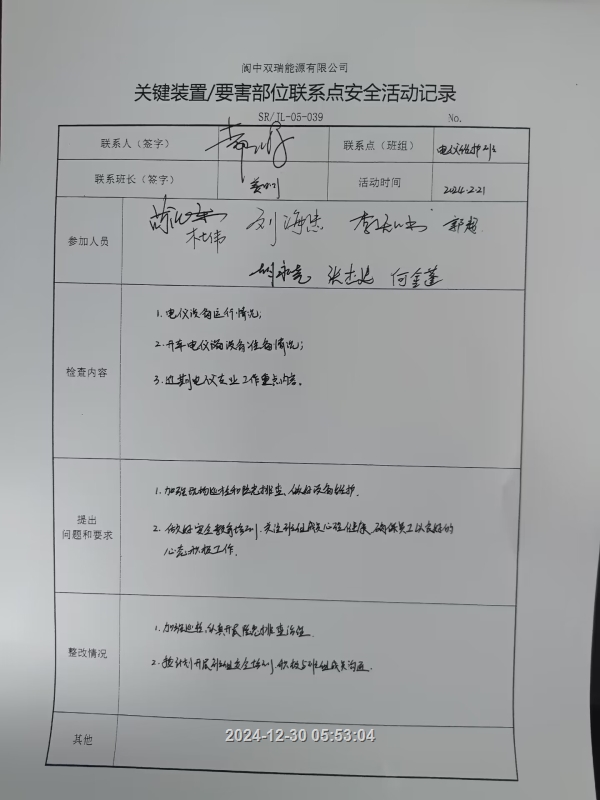 阆中双瑞能源有限公司
关键装置/要害部位联系点安全活动记录
SR/JL-05-039 No.
联系人（签字） 联系点（班组） 电仪维护班
联系班长（签字） 活动时间 2024.2.21
参加人员 刘海忠 郭超
杜伟
张志远 何金莲
检查内容
1. 电仪设备运行情况；
2. 开车电仪设备准备情况；
3. 近期电仪专业工作重点内容。
提出
问题和要求
1. 加强现场巡检和隐患排查，做好设备维护.
2. 做好安全教育培训，关注班组成员心理健康，确保员工以良好的
心态积极工作.
整改情况
1. 加强巡检，认真开展隐患排查治理.
2. 按计划开展班组安全培训，积极与班组成员沟通.
其他
2024-12-30 05:53:04